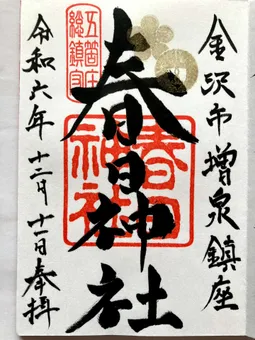 金沢市増泉鎮座
五箇庄
総鎮守
春日神社
春日
神社
令和六年十二月十一日奉拝